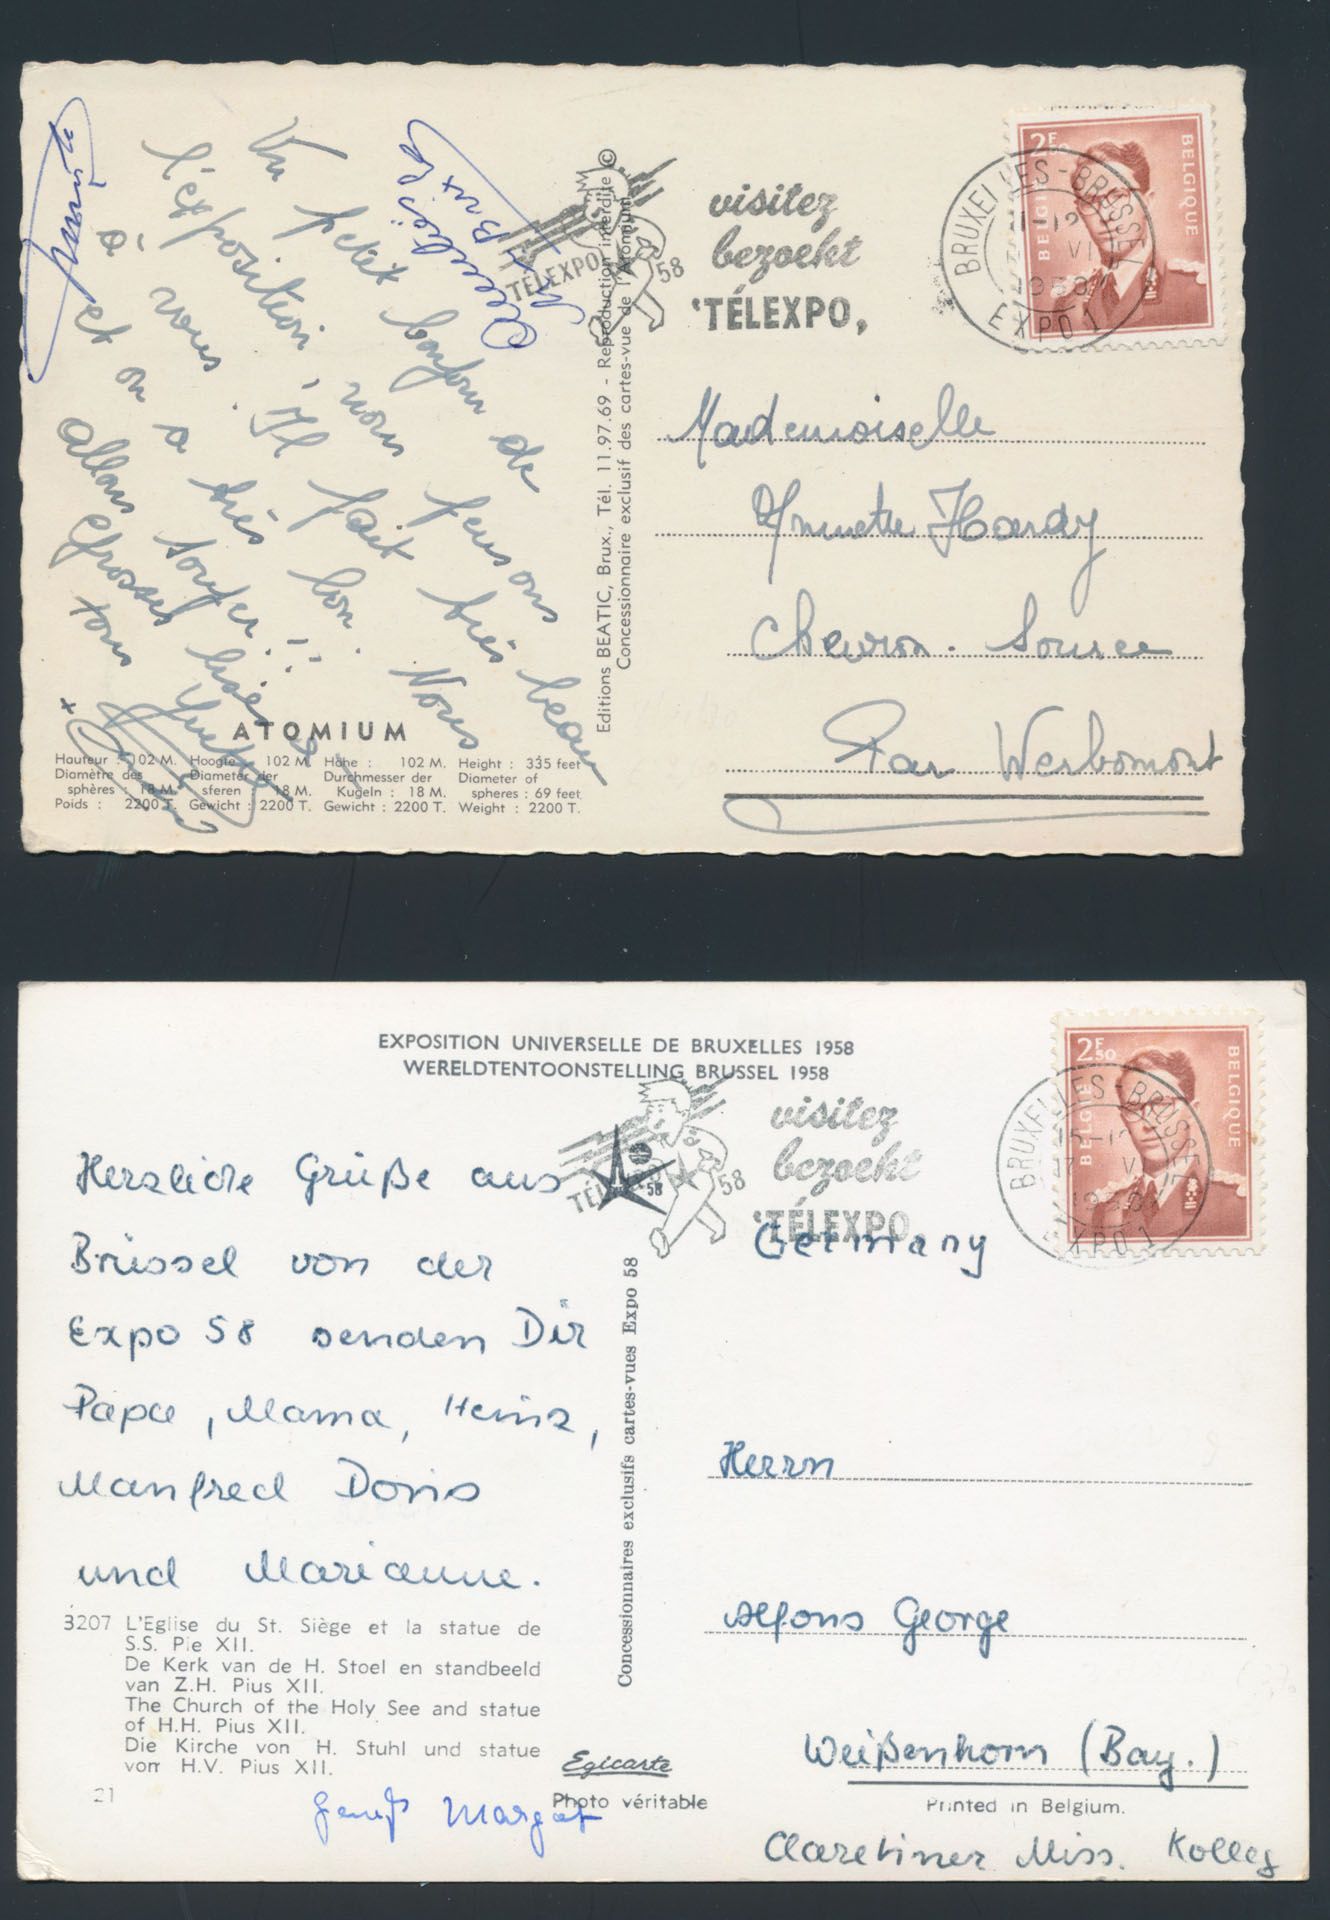 Un petit bonjour de
l'exposition, nous pensons
à vous. Il fait très beau
et on a très bon. Nous
allons souper!!
Grosses bises
tous Yvette
ATOMIUM
Hauteur : 102 M. Hoogte : 102 M. Höhe : 102 M. Height : 335 feet
Diamètre des Diameter der Durchmesser der Diameter of
sphères : 18 M. sferen : 18 M. Kugeln : 18 M. spheres : 69 feet
Poids : 2200 T. Gewicht : 2200 T. Gewicht : 2200 T. Weight : 2200 T.
Editions BEATIC, Brux., Tél. 11.97.69 - Reproduction interdite ©
Concessionnaire exclusif des cartes-vue de l'Atomium
TÉLEXPO 58
visitez
bezoekt
'TÉLEXPO,
BRUXELLES-BRUSSEL
VI
1958
EXPO 1
2F
BELGIË
BELGIQUE
Mademoiselle
Annette Hardy
Chevron. Source
Par Werbomont
EXPOSITION UNIVERSELLE DE BRUXELLES 1958
WERELDTENTOONSTELLING BRUSSEL 1958
58
58
visitez
bezoekt
'TÉLEXPO
BRUXELLES-BRUSSEL
EXPO 1
2F50
BELGIË
BELGIQUE
Herzliche Grüße aus
Brüssel von der
Expo 58 senden Dir
Papa, Mama, Heinz,
Manfred Doris
und Marianne.
3207 L'Eglise du St. Siège et la statue de
S.S. Pie XII.
De Kerk van de H. Stoel en standbeeld
van Z.H. Pius XII.
The Church of the Holy See and statue
of H.H. Pius XII.
Die Kirche von H. Stuhl und statue
von H.V. Pius XII.
21
Margot
Egicarte
Photo véritable
Concessionnaires exclusifs cartes-vues Expo 58
Germany
Herrn
Alfons George
Weißenhorn (Bay.)
Printed in Belgium.
Claretiner Miss. Kolleg